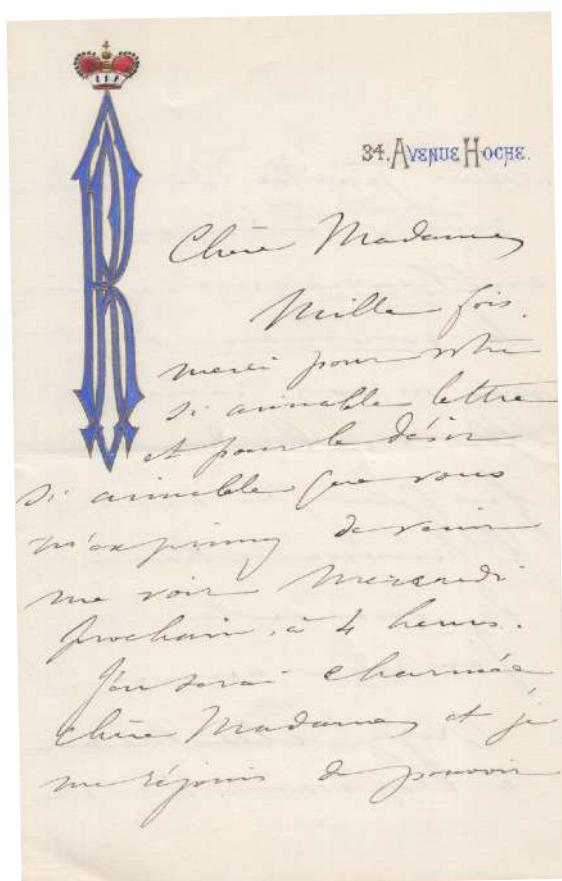 34. AVENUE HOCHE.
Chère Madame,
Mille fois
merci pour votre
si aimable lettre
et pour le désir
si aimable que vous
m'exprimez de venir
me voir Mercredi
prochain, à 4 heures.
J'en serai charmée
chère Madame, et je
me réjouis de pouvoir